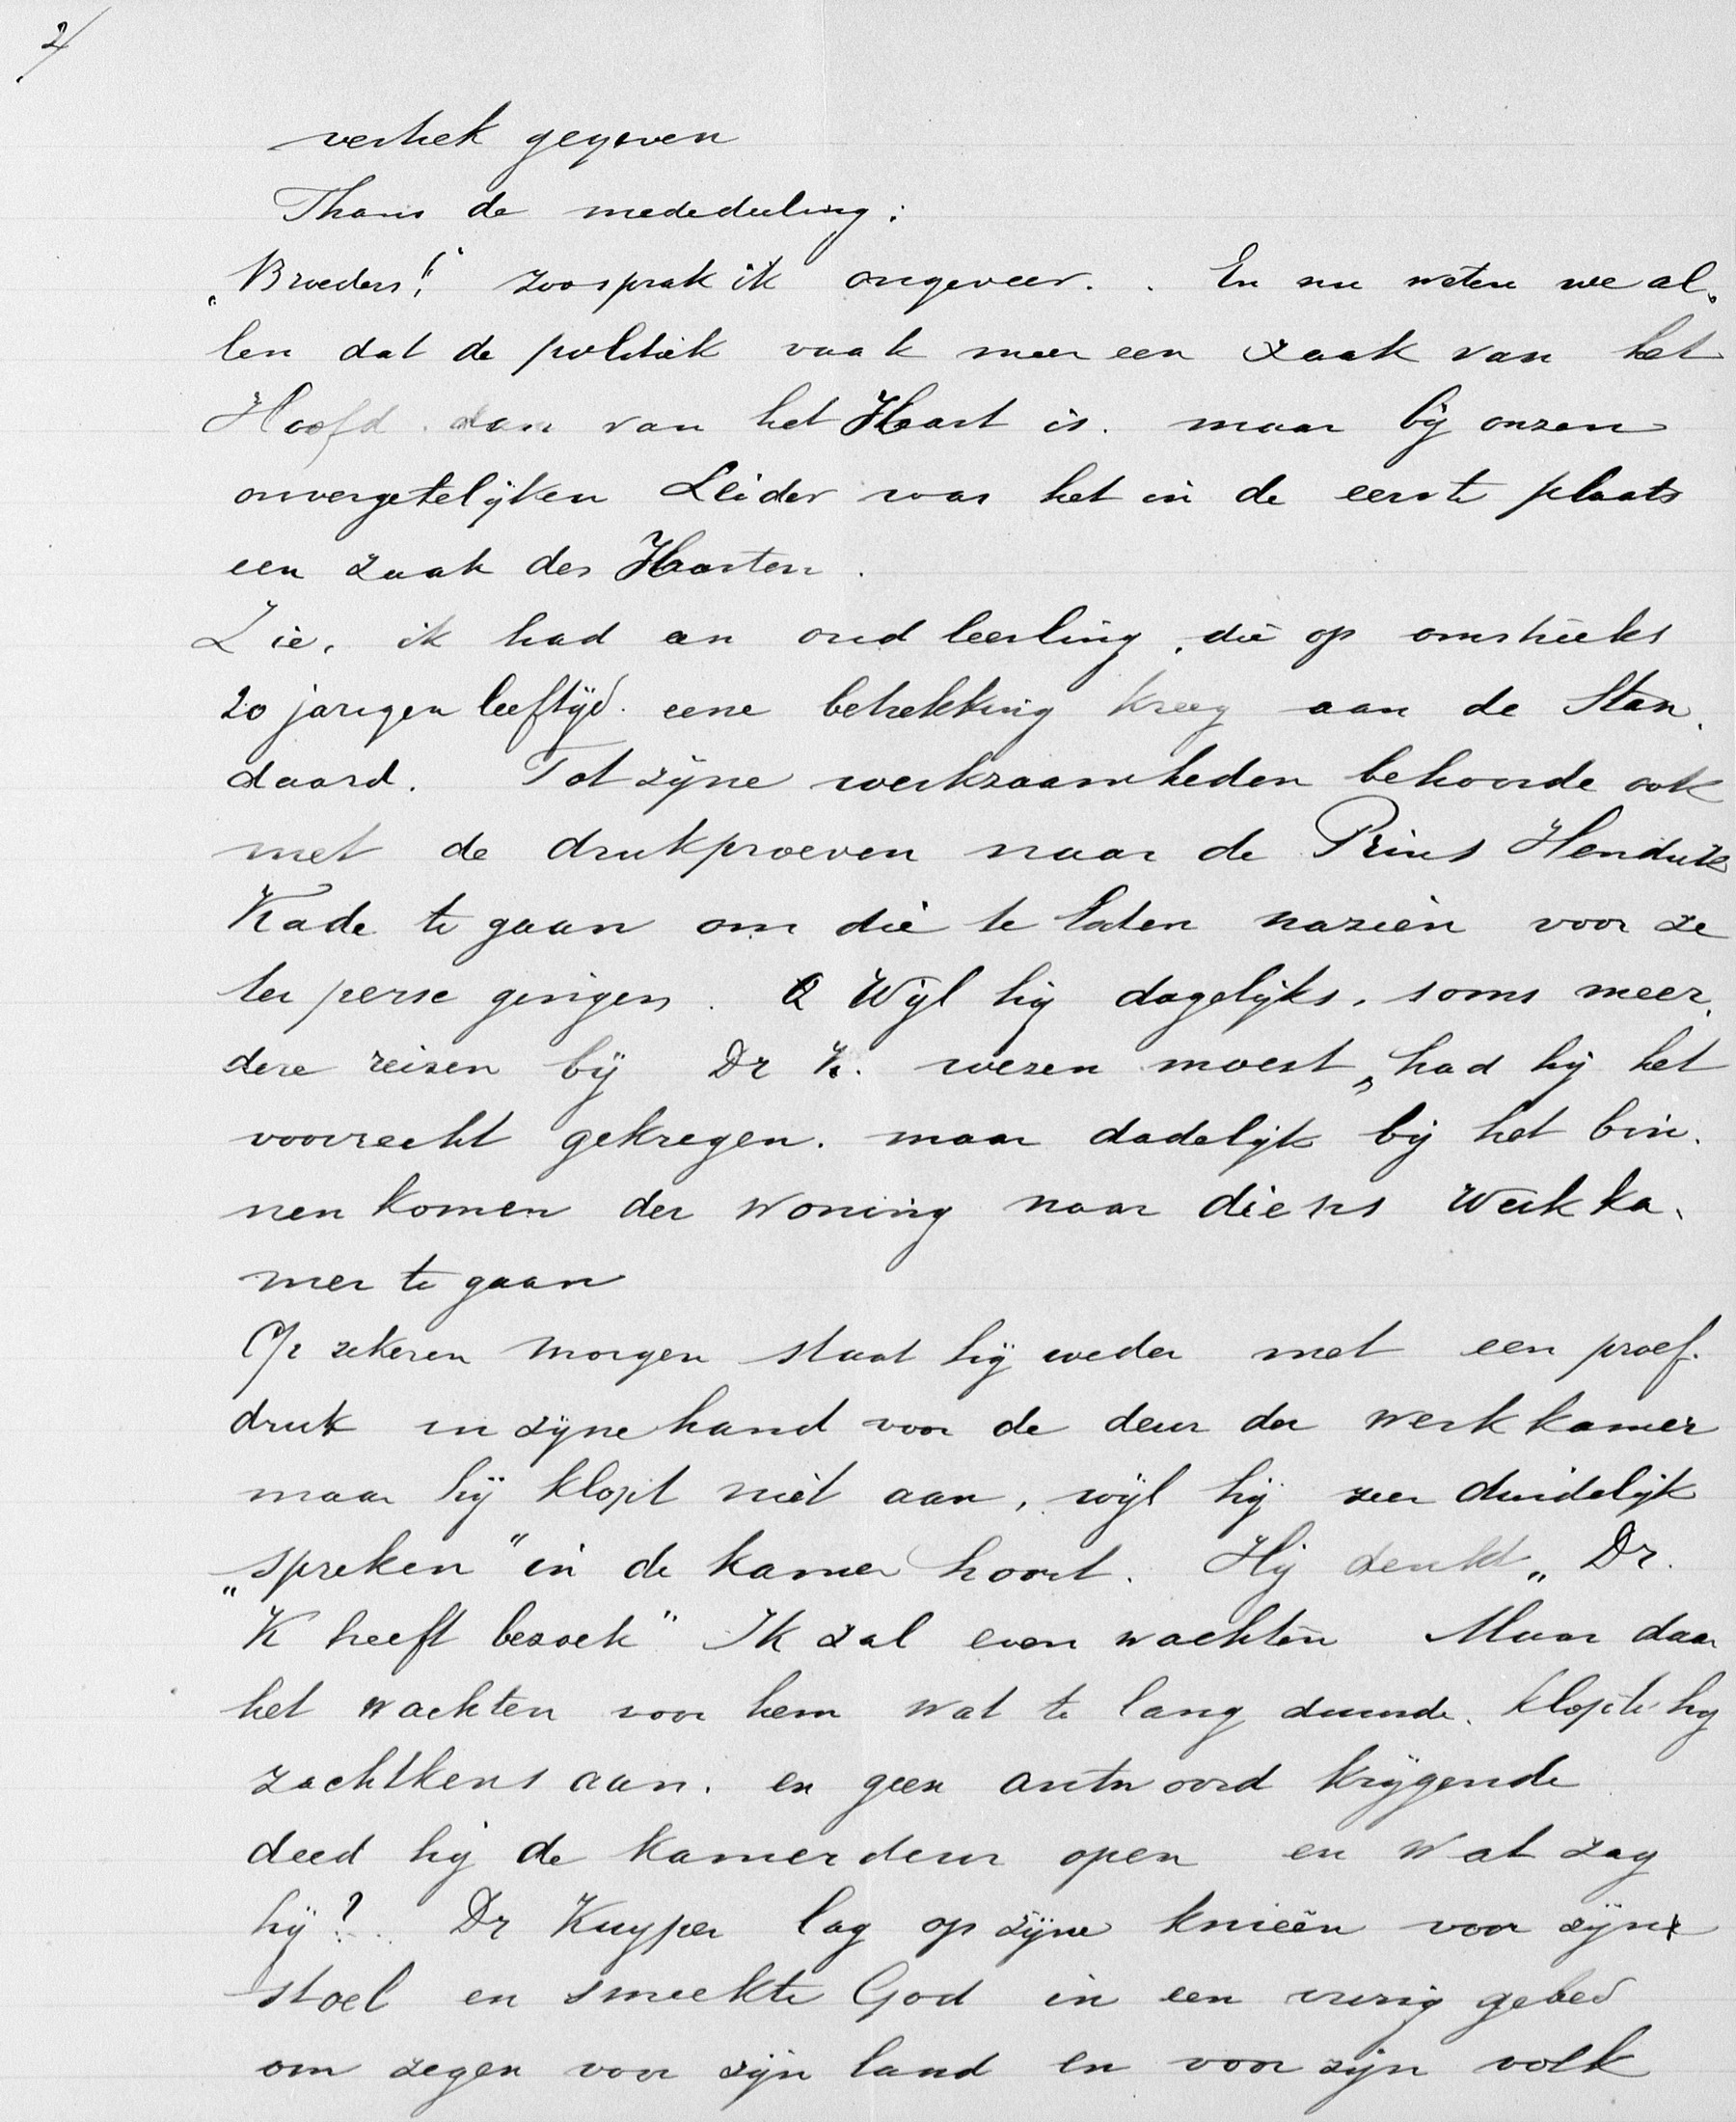 2/
verhek gegeven
Thans de mededeeling:
„Broeders!“ zoo sprak ik ongeveer.. En nu weten we al-
len dat de politiek vaak meer een zaak van het
Hoofd dan van het Hart is. maar bij onzen
onvergetelijken Leider was het in de eerste plaats
een zaak des Harten.
Zie, ik had een oud leerling, die op omstreeks
20 jarigen leeftijd. eene betrekking kreeg aan de Stan-
daard. Tot zijne werkzaamheden behoorde ook
met de drukproeven naar de Prins Hendrik
Kade te gaan om die te laten nazien voor ze
ter perse gingen. Wijl hij dagelijks, soms meer-
dere reizen bij Dr K. wezen moest, had hij het
voorrecht gekregen. maar dadelijk bij het bin-
nen komen der woning naar diens Werkka-
mer te gaan
Op zekeren morgen staat hij weder met een proef-
druk in zijne hand voor de deur der werkkamer
maar hij klopt niet aan, wijl hij zeer duidelijk
„spreken“ in de kamer hoort. Hij denkt „Dr.
K heeft bezoek“ Ik zal even wachten Maar daar
het wachten voor hem wat te lang duurde, klopte hij
zachtkens aan. en geen antwoord krijgende
deed hij de kamerdeur open en wat zag
hij?.. Dr Kuyper lag op zijne knieën voor zijn
stoel en smeekte God in een vurig gebed
om zegen voor zijn land en voor zijn volk